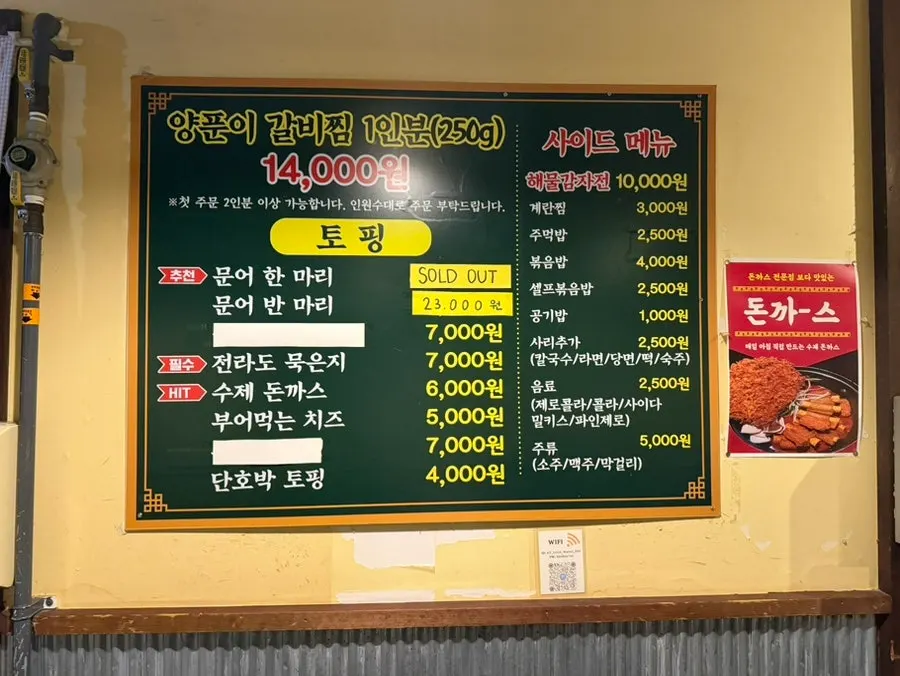 양푼이 갈비찜 1인분(250g)
14,000원
※첫 주문 2인분 이상 가능합니다. 인원수대로 주문 부탁드립니다.
토핑
추천 문어 한 마리 SOLD OUT
문어 반 마리 23.000원
7,000원
필수 전라도 묵은지 7,000원
HIT 수제 돈까스 6,000원
부어먹는 치즈 5,000원
7,000원
단호박 토핑 4,000원
사이드 메뉴
해물감자전 10,000원
계란찜 3,000원
주먹밥 2,500원
볶음밥 4,000원
셀프볶음밥 2,500원
공기밥 1,000원
사리추가 2,500원
(칼국수/라면/당면/떡/숙주)
음료 2,500원
(제로콜라/콜라/사이다
밀키스/파인제로)
주류 5,000원
(소주/맥주/막걸리)
돈까스 전문점 보다 맛있는
돈까-스
매일 아침 직접 만드는 수제 돈까스
WIFI